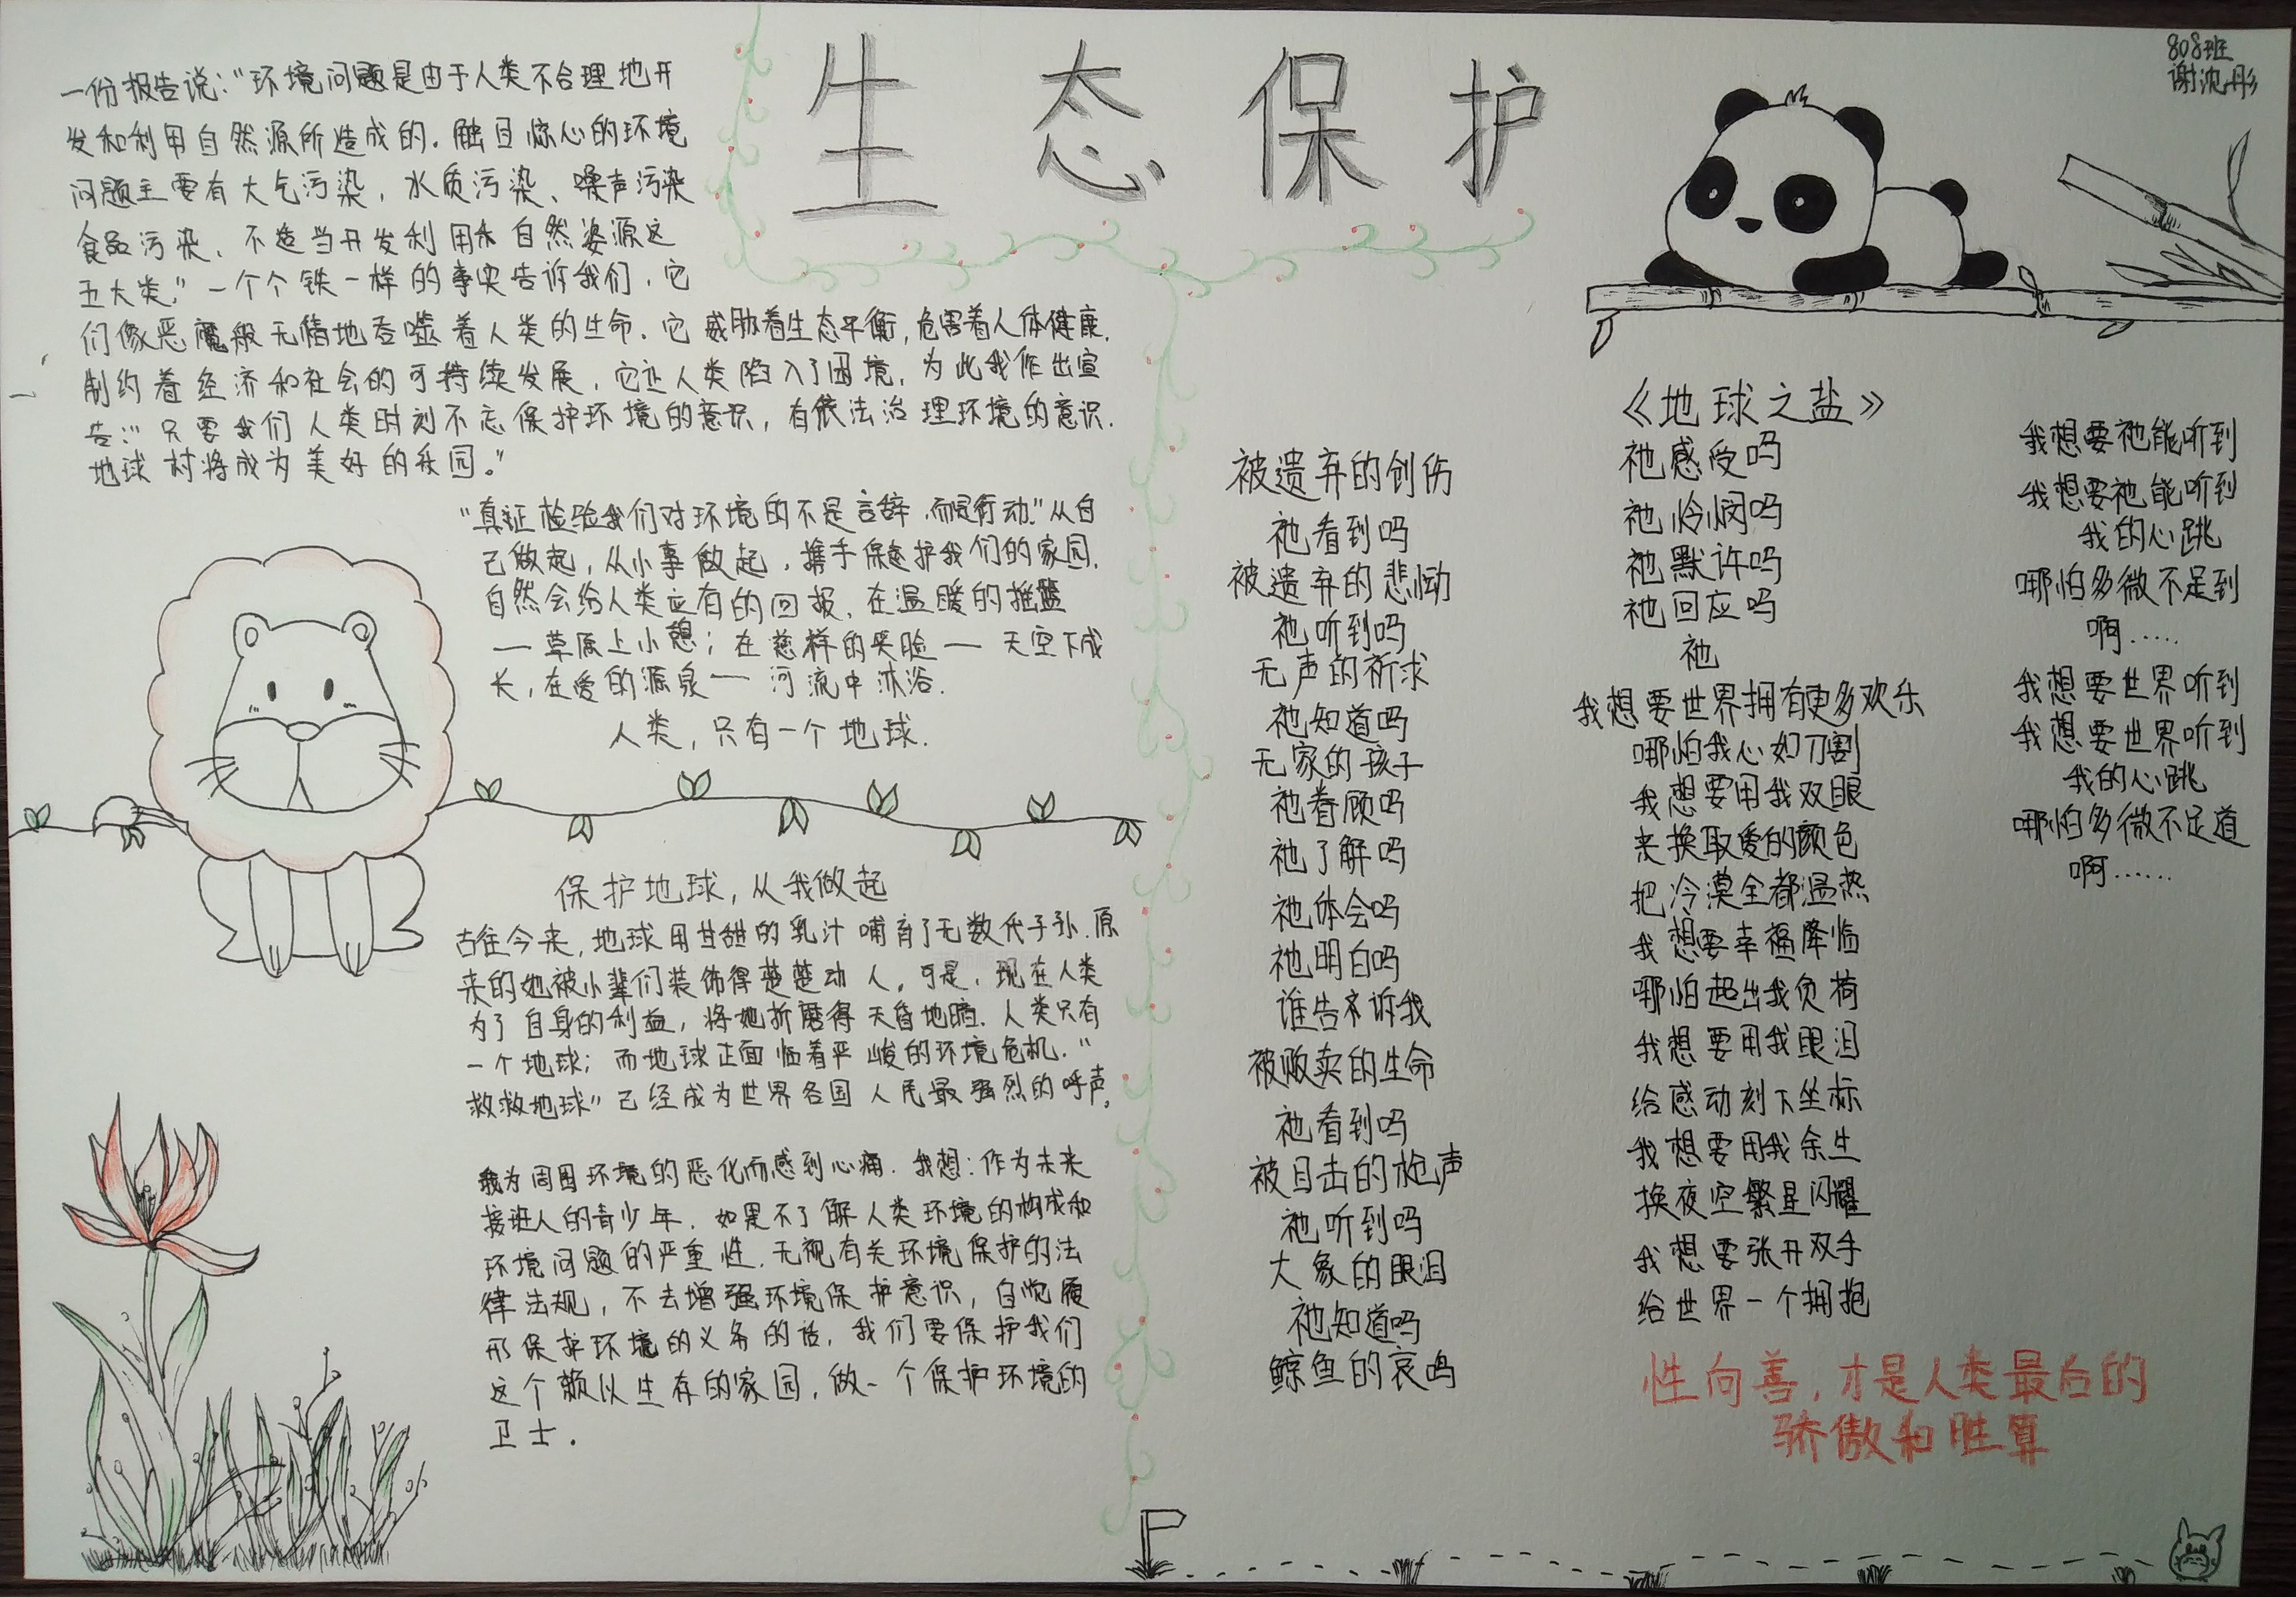 生态保护
808班
谢沈彤
一份报告说:“环境问题是由于人类不合理地开
发和利用自然源所造成的.触目惊心的环境
问题主要有大气污染,水质污染、噪声污染
食品污染、不适当开发利用禾自然姿源这
五大类.”一个个铁一样的事实告诉我们,它
们像恶魔般无情地吞噬着人类的生命.它威胁着生态平衡,危害着人体健康.
制约着经济和社会的可持续发展,它让人类陷入了困境,为此我作出宣
告:“只要我们人类时刻不忘保护环境的意识,有依法治理环境的意识.
地球村将成为美好的乐园。”
“真征检验我们对环境的不是言辞,而是行动.”从自
己做起,从小事做起,携手保护我们的家园.
自然会给人类应有的回报,在温暖的摇篮
—草原上小憩;在慈祥的笑脸—天空下成
长,在爱的源泉—河流中沐浴.
人类,只有一个地球.
保护地球,从我做起
古往今来,地球用甘甜的乳汁哺育了无数代子孙.原
来的她被小辈们装饰得楚楚动人。可是,现在人类
为了自身的利益,将她折磨得天昏地暗.人类只有
一个地球;而地球正面临着严峻的环境危机.“
救救地球”已经成为世界各国人民最强烈的呼声。
我为周围环境的恶化而感到心痛.我想:作为未来
接班人的青少年,如果不了解人类环境的构成和
环境问题的严重性,无视有关环境保护的法
律法规,不去增强环境保护意识,自觉履
形保护环境的义务的话,我们要保护我们
这个赖以生存的家园,做一个保护环境的
卫士.
《地球之盐》
被遗弃的创伤
祂看到吗
被遗弃的悲恸
祂听到吗
无声的祈求
祂知道吗
无家的孩子
祂眷顾吗
祂了解吗
祂体会吗
祂明白吗
谁告诉我
被贩卖的生命
祂看到吗
被目击的枪声
祂听到吗
大象的眼泪
祂知道吗
鲸鱼的哀鸣
祂感受吗
祂怜悯吗
祂默许吗
祂回应吗
祂
我想要世界拥有更多欢乐
哪怕我心如刀割
我想要用我双眼
来换取爱的颜色
把冷漠全都温热
我想要幸福降临
哪怕超出我负荷
我想要用我眼泪
给感动刻下坐标
我想要用我余生
换夜空繁星闪耀
我想要张开双手
给世界一个拥抱
我想要祂能听到
我想要祂能听到
我的心跳
哪怕多微不足到
啊……
我想要世界听到
我想要世界听到
我的心跳
哪怕多微不足道
啊……
性向善,才是人类最后的
骄傲和胜算